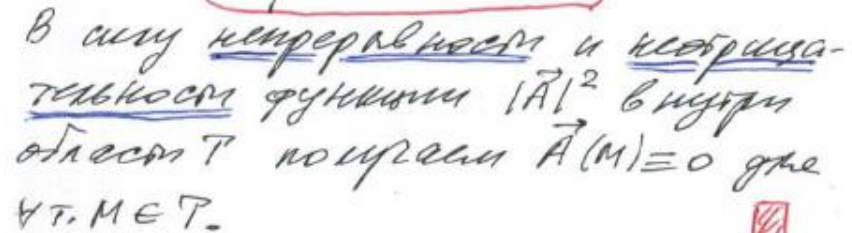 В силу непрерывности и неотрица-
тельности функции |A⃗|² внутри
области T получаем A⃗(M)≡0 для
∀ т. M ∈ T.